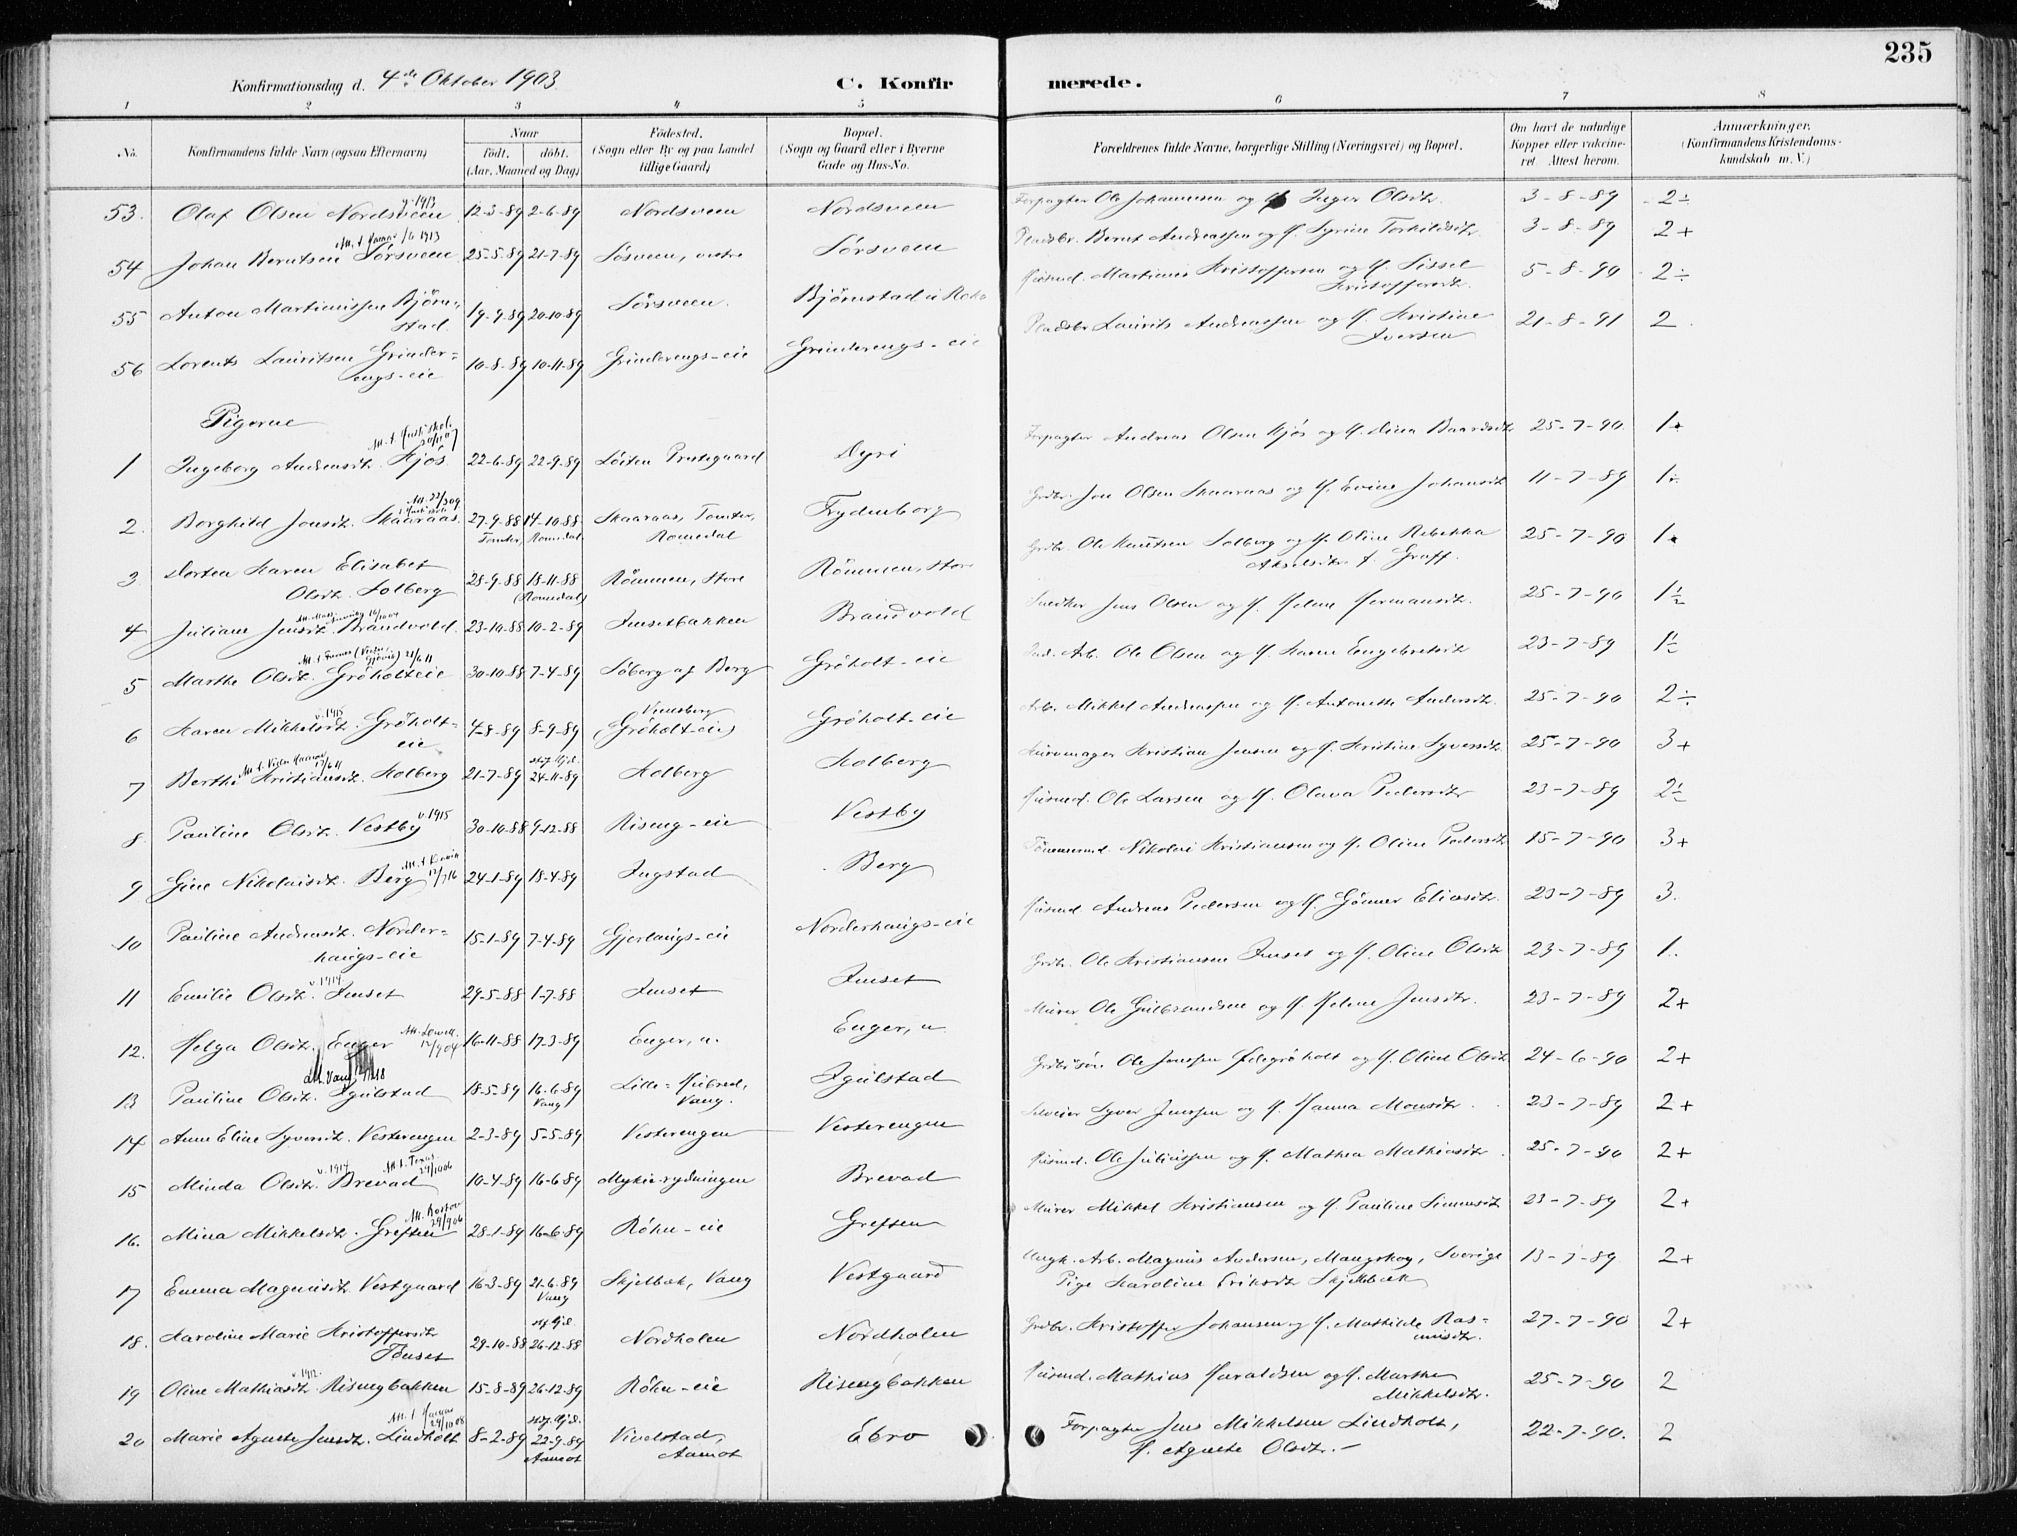 235
Konfirmationsdag d. 4de Oktober 1903
C. Konfirmerede.
1 2 3 4 5 6 7 8
No. Konfirmandens fulde Navn (ogsaa Efternavn) Naar födt. döbt. (Aar, Maaned og Dag) Födested. (Sogn eller By og paa Landet tillige Gaard) Bopæl. (Sogn og Gaard eller i Byerne Gade og Hus-No. Forældrenes fulde Navne, borgerlige Stilling (Næringsvei) og Bopæl. Om havt de naturlige Kopper eller vaccineret. Attest herom. Anmærkninger. (Konfirmandens Kristendomskundskab m. V.)
53. Olaf Olsen Nordsveen 12-3-89 2-6-89 Nordsveen Nordsveen Forpagter Ole Johannesen og H. Inger Olsdtr. 3-8-89 2÷
54 Johan Berntsen Sörsveen 25-5-89 21-7-89 Sösveen, vestre Sörsveen Pladsbr. Bernt Andreassen og H. Syrine Torkildsdtr. 3-8-89 2+
55 Anton Martiniussen Björnstad 19-9-89 20-10-89 Sörsveen. Björnstad i Roko Husmd. Martinus Kristoffersen og H. Sissel Kristoffersdtr. 5-8-90 2÷
56 Lorents Lauritsen Grinderengs-eie 10-8-89 10-11-89 Grinderengs-eie Grinderengs-eie Pladsbr Laurits Andreassen og H. Kristine Iversen 21-8-91 2
Pigerne
1 Ingeborg Andreasdtr. Kjös 22-6-89 22-9-89 Löiten Prestegaard Dyri Forpagter Andreas Olsen Kjös og H. Dina Baardsdtr 25-7-90 1+
2. Borghild Jonsdtr. Skaaraas 27-9-88 14-10-88 Tomter, Romedal Skaaraas, Tomter, Romedal Frydenborg Grdbr. Jon Olsen Skaaraas og H. Evine Johansdtr 11-7-89 1÷
3 Dorthea Karen Elisabet Olsdtr. Solberg 28-9-88 18-11-88 (Romedal) Römmen, store Römmen, store Grdbr. Ole Knutsen Solberg og H. Oline Rebekka Akselsdtr. f. Graff. 25-7-90 1
4 Juliane Jensdtr. Brandvold. 23-10-88 10-2-89 Imsetbakken Brandvold Snedker Jens Olsen og H. Helene Hermansdtr. 25-7-90 1½
5 Marthe Olsdtr. Gröholteie 30-10-88 7-4-89 Söberg af Berg Gröholt-eie Arb. Ole Olsen og H. Karen Engebretsdtr 23-7-89 1½
6 Karen Mikkelsdtr. v. 1915 Gröholt-eie 4-8-89 8-9-89 (Gröholt-eie) Gröholt-eie Arb. Mikkel Andreassen og H. Antonette Andersdtr. 25-7-90 2÷
7 Berthe Kristiansdtr. Kolberg 21-7-89 24-11-89 Kolberg Kolberg Kurvmager Kristian Jensen og H. Kristine Syversdtr 25-7-90 3+
8. Pauline Olsdtr. Vestby v. 1915 30-10-88 9-12-88 Riseng-eie Vestby Husmd. Ole Larsen og H. Olava Pedersdtr 23-7-89 2½
9 Gine Nikolaisdtr. Berg 24-1-89 18-4-89 Ingstad Berg Nikolai Kristiansen og H. Oline Pedersdtr 15-7-90 3+
10 Pauline Andreasdtr. Norderhaugs-eie 15-1-89 7-4-89 Gjerlaugs-eie Norderhaugs-eie Husmd Andreas Pedersen og H. Gönner Eliasdtr. 23-7-89 3.
11 Emilie Olsdtr. v. 1914 Imset 29-5-88 1-7-88 Imset Imset Grdbr. Ole Kristiansen Imset og H. Oline Olsdtr 23-7-89 1.
12. Helga Olsdtr. Enger Att. Lowell. 12/9 04 16-11-88 17-3-89 Enger, n. Enger, n Murer Ole Gulbrandsen og H. Helene Jensdtr. 23-7-89 2+
13 Pauline Olsdtr. Igulstad Att. Vang 18-5-89 16-6-89 Vang Lille-Hubred, Vang. Igulstad Grdbrsön Ole Jenssen Ødegröholt og H. Oline Olsdtr 24-6-90 2+
14 Anne Eline Syversdtr. Vesterengen 2-3-89 5-5-89 Vesterengen Vesterengen Selveier Syver Jenssen og H. Hanna Monsdtr. 23-7-89 2+
15 Minda Olsdtr. v. 1914 Brevad Att. t. Texas. 10-4-89 16-6-89 Mykle-rydningen Brevad Husmd. Ole Juliussen og H. Mathea Mathiasdtr. 25-7-90 2+
16. Mina Mikkelsdtr. Grefsen 28-1-89 16-6-89 Röhn-eie Grefsen Murer Mikkel Kristiansen og H. Pauline Simensdtr 23-7-89 2+
17 Emma Magnusdtr. Vestgaard 16-3-89 21-6-89 Vang Skjelbæk, Vang Vestgaard Ungk. Arb. Magnus Andersen, Mangskog, Sverige Pige Karoline Eriksdtr Skjelbæk 13-7-89 2+
18. Karoline Marie Kristoffersdtr Tönset 29-10-88 26-12-88 Nordholen Nordholen Grdbr. Kristoffer Johansen og H. Mathilde Rasmusdtr. 27-7-90 2+
19 Oline Mathiasdtr. v. 1912. Risengbakken 15-8-89 26-12-89 Röhn-eie Risengbakken Husmd. Mathias Haraldsen og H. Marthe Mikkelsdtr. 25-7-90 2
20 Marie Agnete Jensdtr. Lindholt 8-2-89 22-9-89 Aamot Vivelstad, Aamot Ebro Forpagter Jens Mikkelsen Lindholt, H. Agnete Olsdtr. 22-7-90. 2